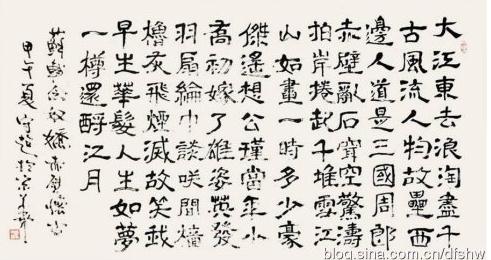 大江東去浪淘盡千
古風流人物故壘西
邊人道是三國周郎
赤壁亂石穿空驚濤
拍岸捲起千堆雪江
山如畫一時多少豪
傑遙想公瑾當年小
喬初嫁了雄姿英發
羽扇綸巾談咲間檣
櫓灰飛煙滅故笑我
早生華髮人生如夢
一樽還酹江月
蘇軾念奴嬌赤壁懷古
甲午夏守
blog.sina.com.cn/dfshw